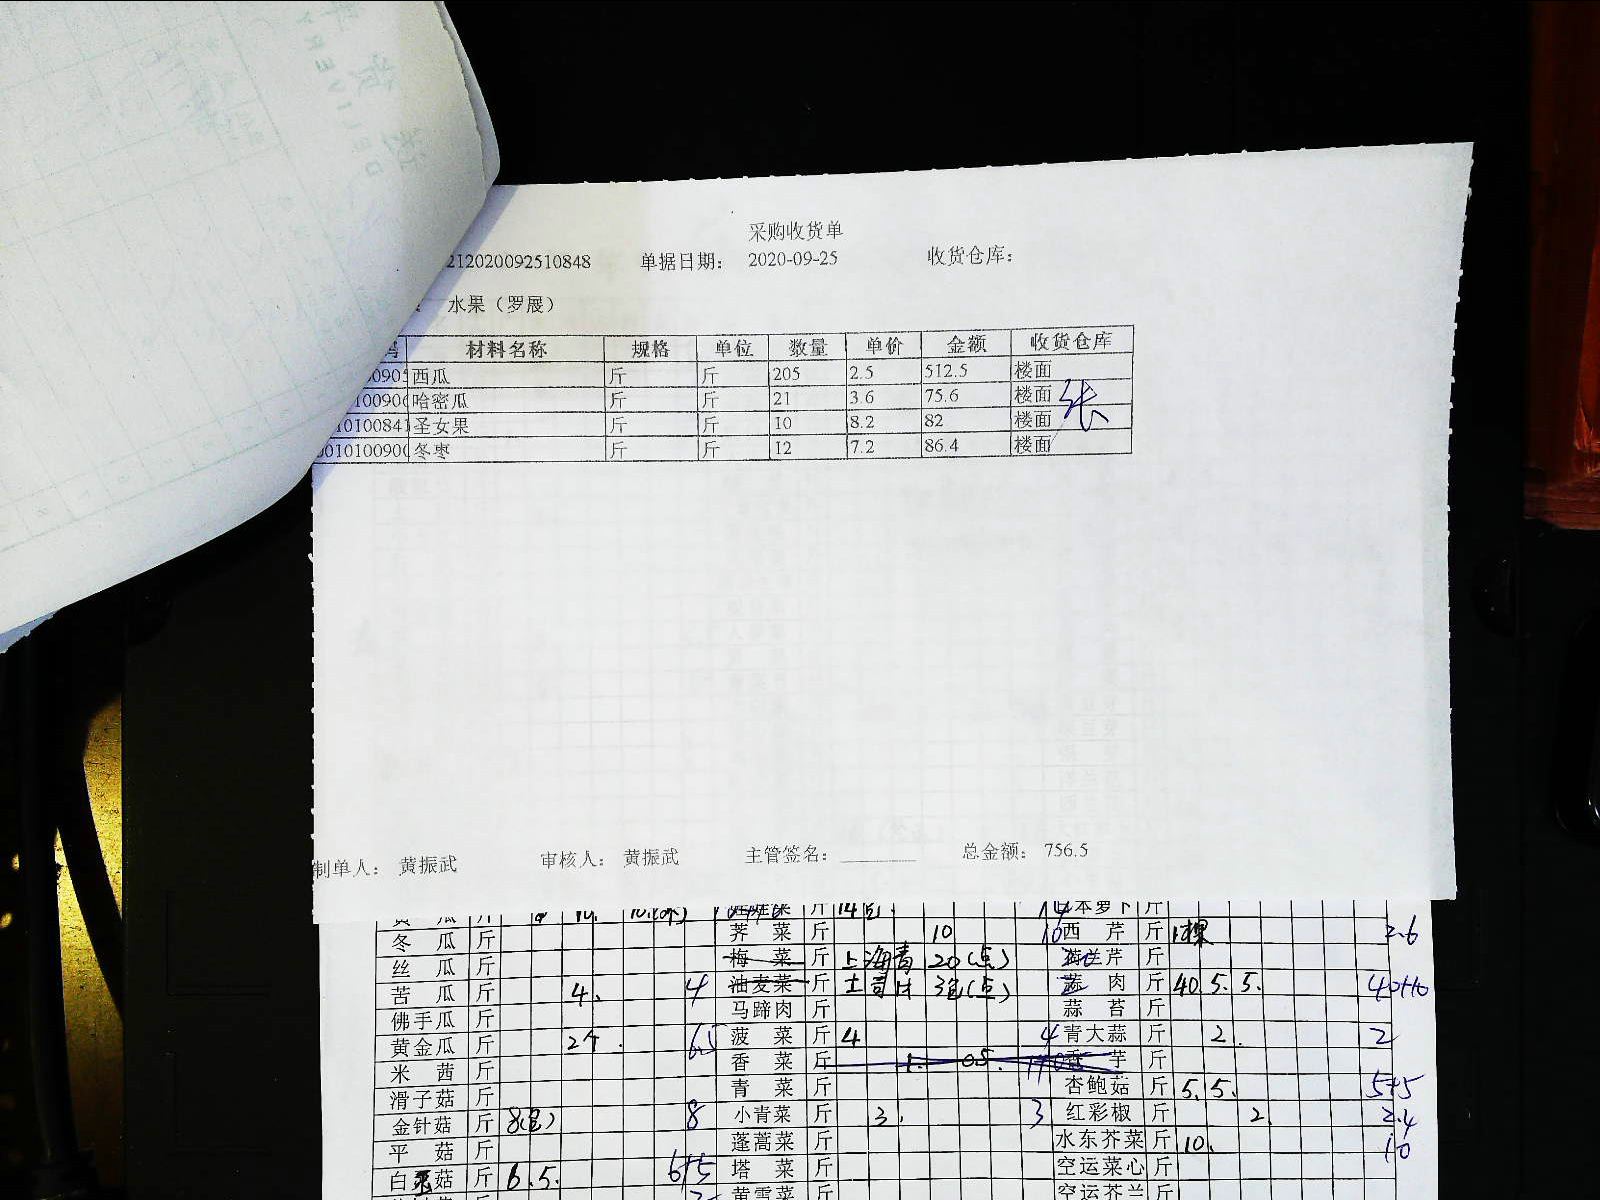 采购收货单
212020092510848 单据日期： 2020-09-25 收货仓库：
： 水果（罗展）
码 材料名称 规格 单位 数量 单价 金额 收货仓库
0090 西瓜 斤 斤 205 2.5 512.5 楼面
100900 哈密瓜 斤 斤 21 3.6 75.6 楼面 张
10100841 圣女果 斤 斤 10 8.2 82 楼面
001010090 冬枣 斤 斤 12 7.2 86.4 楼面
制单人： 黄振武 审核人： 黄振武 主管签名： 总金额： 756.5
瓜 斤 斤 14包 14 日本萝卜 斤
冬瓜 斤 荠菜 斤 10 10 西芹 斤 1棵 2.6
丝瓜 斤 梅菜 斤 上海青 20(点) 芹 斤
苦瓜 斤 4. 4 油麦菜 斤 土司片 3包(点) 肉 斤 40 5. 5. 40+10
佛手瓜 斤 马蹄肉 斤 蒜苔 斤
黄金瓜 斤 2个. 6.5 菠菜 斤 4 4 青大蒜 斤 2. 2
米茜 斤 香菜 斤 1. 0.5. 香芋 斤
滑子菇 斤 青菜 斤 杏鲍菇 斤 5. 5. 5+5
金针菇 斤 8(包) 8 小青菜 斤 3. 3 红彩椒 斤 2. 2.4
平菇 斤 蓬蒿菜 斤 水东芥菜 斤 10. 10
白玉菇 斤 6. 5. 6+5 塔菜 斤 空运菜心 斤
黄雪菜 斤 空运芥兰 斤